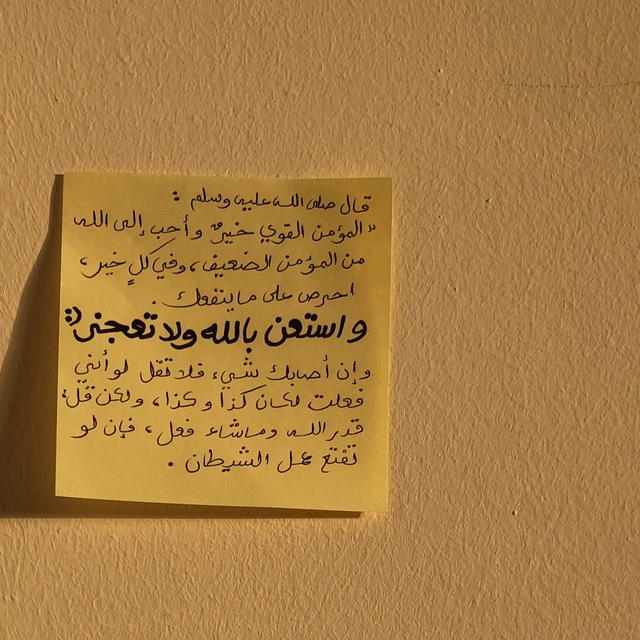 قال صلى الله عليه وسلم :
"المؤمن القوي خيرٌ وأحب إلى الله
من المؤمن الضعيف، وفي كلٍ خير،
احرص على ما ينفعك .
واستعن بالله ولا تعجز":
وإن أصابك شيء فلا تقل لو أنني
فعلت لكان كذا وكذا، ولكن قُل:
قدر الله وماشاء فعل، فإن لو
تفتح عمل الشيطان .